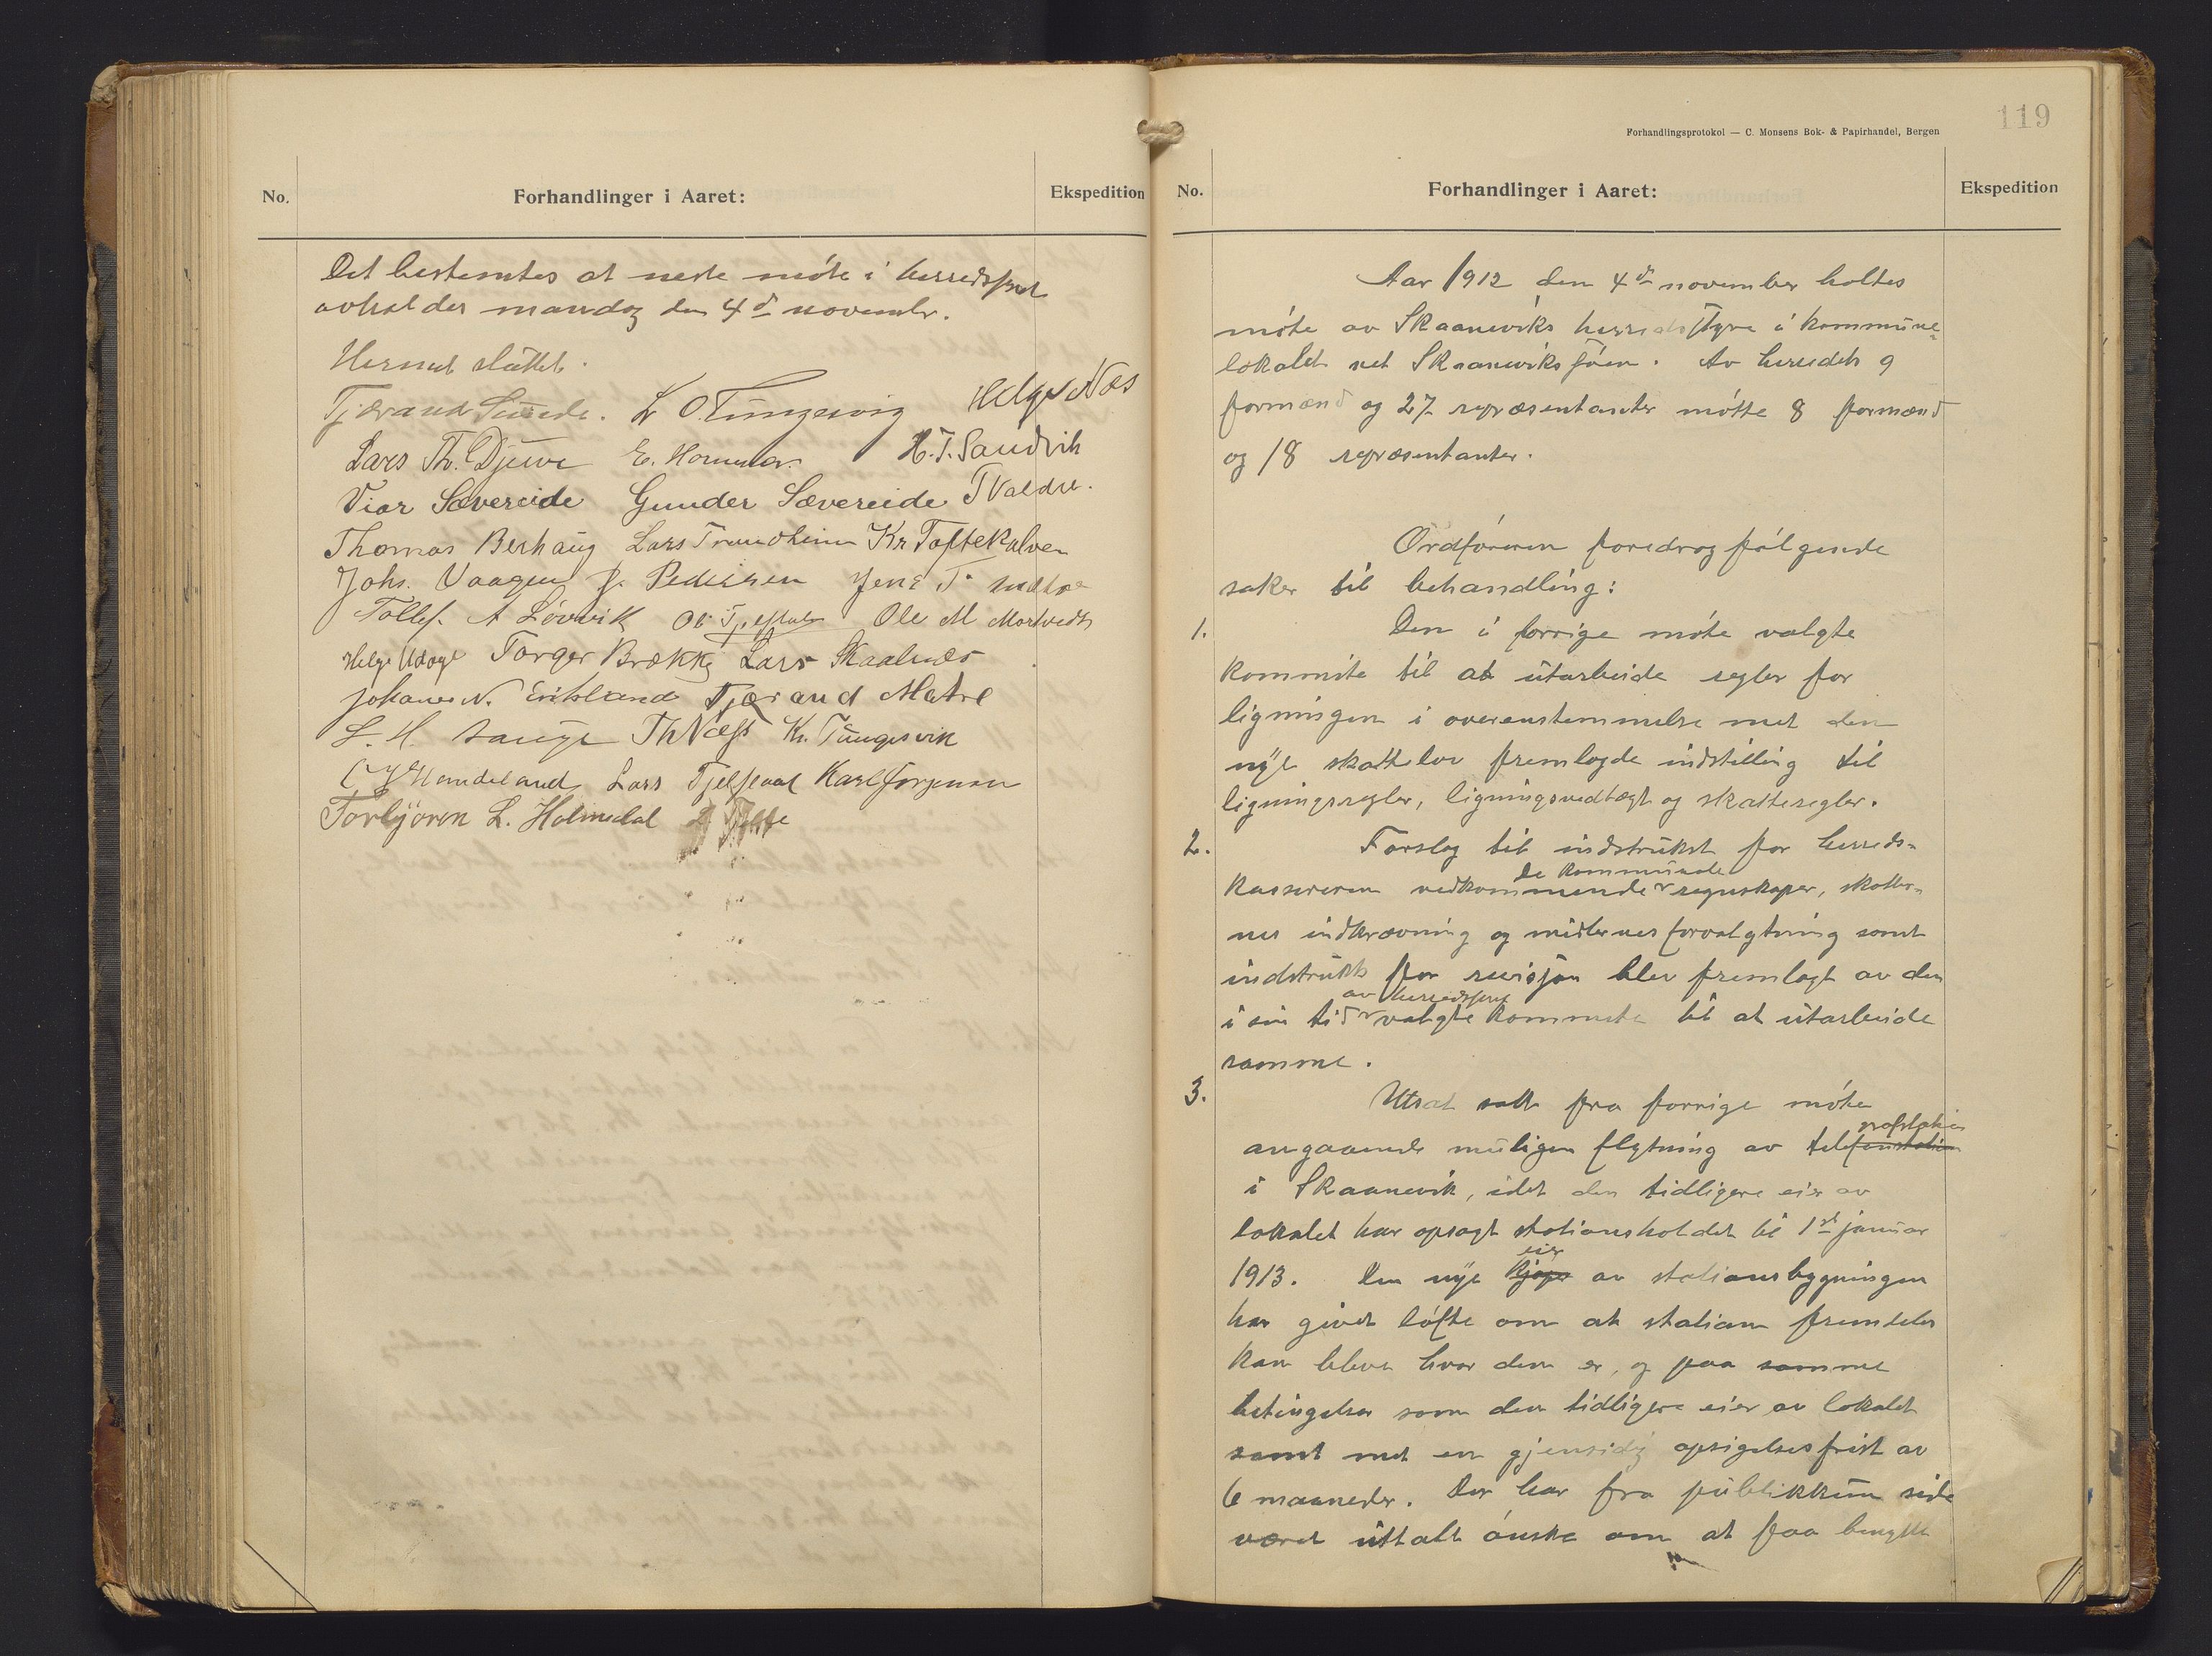 No.
Forhandlinger i Aaret:
Ekspedition
Det bestemtes at neste möte i herredsstyret
avholdes mandag den 4de novembr.
Hermed sluttet.
Tjærand L O. Tungesvig Helge Næs
Lars Th. Djuve E. Hommer H. T. Sandvik
Viar Sævereide Gunder Sævereide T Valdre.
Thomas Berhaug Lars Trundheim Kr Toftekalven
Johs. Vaagen P. Pedersen Jens T.
Tollef. A Lövvik Ole M Mortvedt
Helge Torger Brække Lars Skaalnæs
Johanes N. Eriksland Tjærand Matre
L. H. Sauge Th Næss Kr. Tungesvik
Handeland Lars Tjelflaat Karl Jorgensen
Torbjörn L. Holmedal
119
Forhandlingsprotokol — C. Monsens Bok- & Papirhandel, Bergen
No.
Forhandlinger i Aaret:
Ekspedition
Aar 1912 den 4de november holtes
möte av Skaaneviks herredsstyre i kommune-
lokalet ved Skaaneviksjöen. Av herredets 9
formænd og 27 repræsentanter mötte 8 formænd
og 18 repræsentanter.
Ordföreren foredrog fölgende
saker til behandling:
1. Den i forrige möte valgte
kommite til at utarbeide regler for
ligningen i overenstemmelse med den
nye skattelov fremlagde indstilling til
ligningsregler, ligningsvedtægt og skatteregler.
2. Forslag til indstrukst for herreds-
de kommunale
kassereren vedkommende regnskaper, skatter-
nes indkrævning og midlernes forvalgtning samt
indstruks for revisjon blev fremlagt av den
av herredsstyret
i sin tid valgte kommite til at utarbeide
samme.
3. Utsat sak fra forrige möte
grafstation
angaaende muligen flytning av telefonstation
i Skaanevik, idet den tidligere eier av
lokalet har opsagt stationsholdet til 1st januar
eier
1913. Den nye kjøper av stationsbygningen
har givet löfte om at station fremdeles
kan bleve hvor den er, og paa samme
betingelser som den tidligere eier av lokalet
samt med en gjensidig opsigelsesfrist av
6 maaneder. Der har fra publikkum side
været uttalt önske om at faa benytte